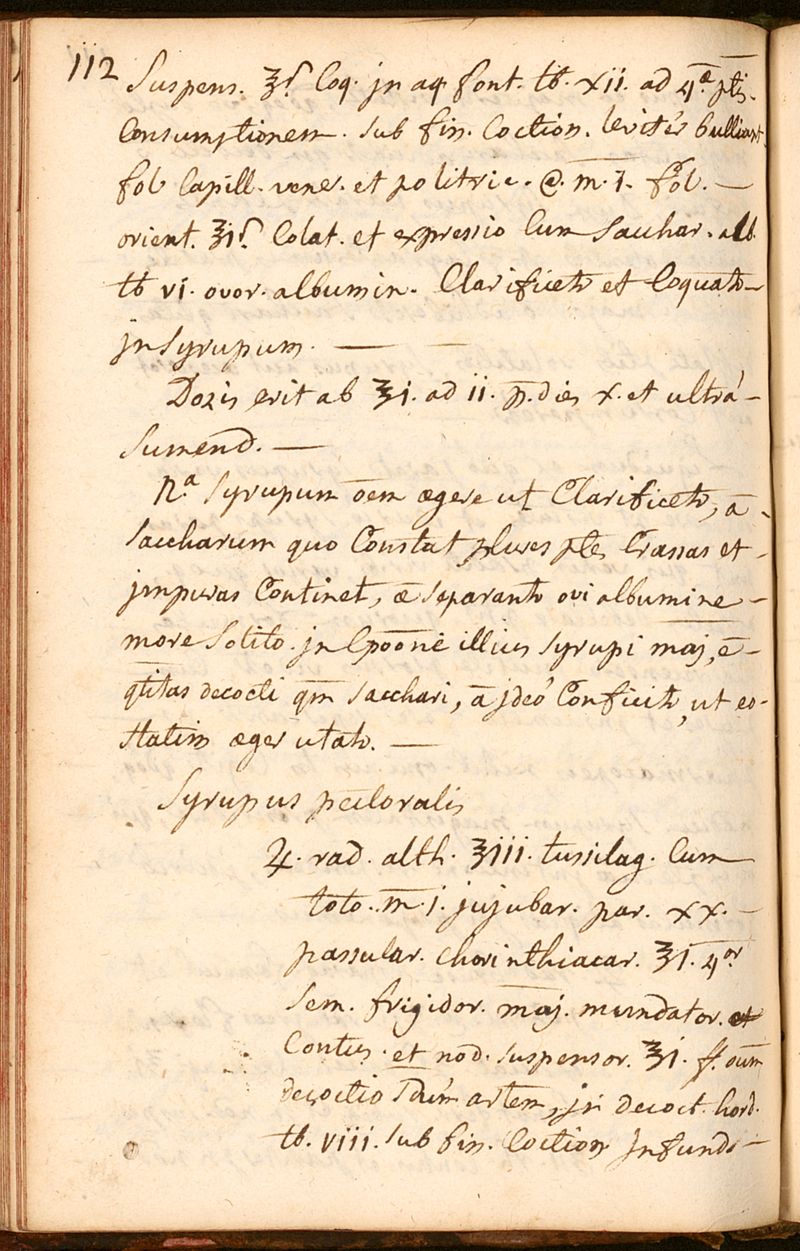 112
Suspens. ʒſ. Coq. jn aq font. ℔. xii. ad 4.ᵃ ptis
Consumptionem. Sub fin. Coction. levitér bulliant
fol Capill. vener. et politric. @. m̄. j. fol. —
orient. ʒiſ. Colat. et expressio Cum Sacchar. alb.
℔ vi. ovor. albumin. Clarificetr et Coquatr —
jn Syrupum. — —
Dozis erit ab ℥i. ad ii. p. dies x. et ultrá —
Sumend. —
N.ᵃ Syrupum ōem ægere ut Clarificetr, ā -
Saccharum quo Constat plures ptes Crassas et -
jmpuras Continet, æ Separantr ovi albumine -
more Solito. jn Cpōōne illius Syrupi maj, ē -
qtitas decocti qm̄ Sacchari, ā jdeó Conficitr, ut eo-
Statim æger utatr. —
Syrupus pectoralis
♃. rad. alth. ℥iii. tussilag. Cum
toto. m̄. j. jujubar. par. xx. -
passular. chorinthiacar. ℥i. 4.ᵒʳ
Sem. frigidor. maj. mundator. et
Contus. et nod. suspensor. ℥i. ff. oūm
decoctio Sdúm artem, jn decoct. hord.
℔. viii. Sub fin. Coction jnfund -